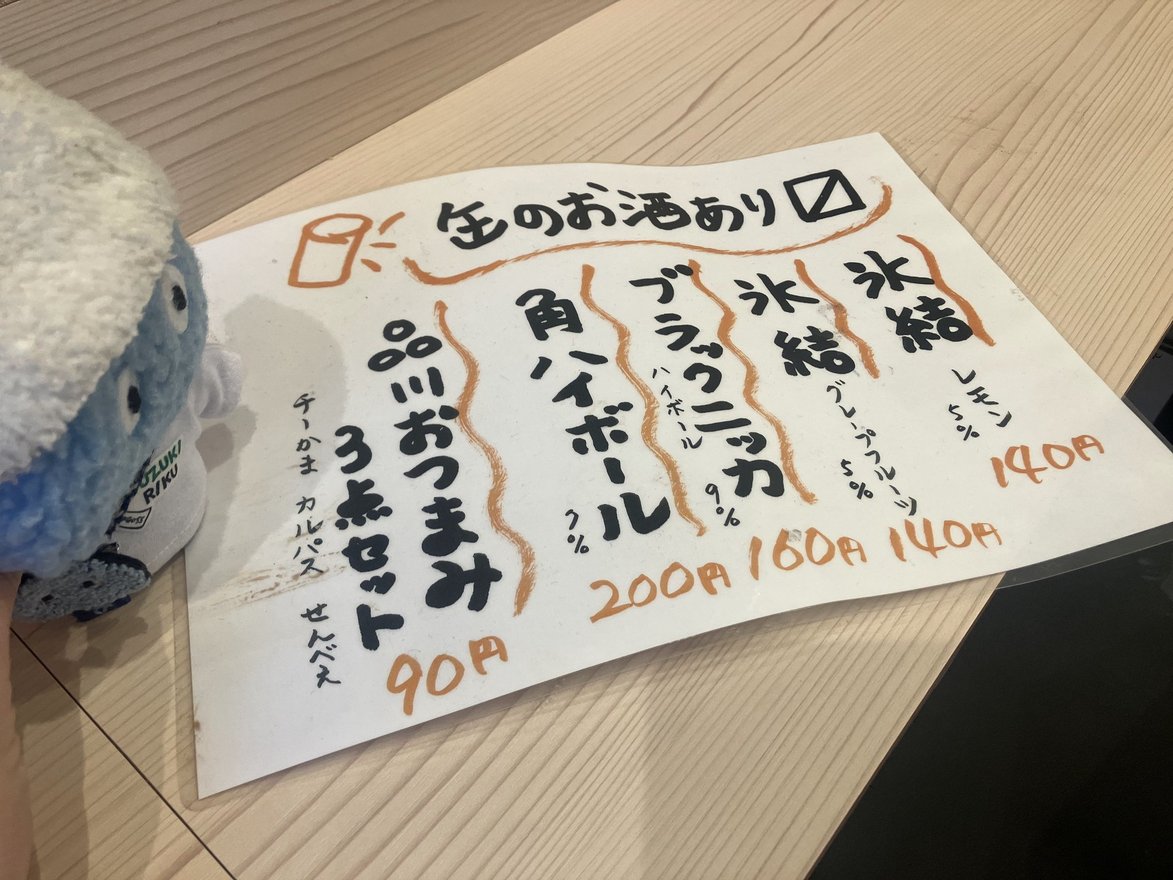 缶のお酒あり〼
氷結
レモン
5%
140円
氷結
グレープフルーツ
5%
140円
ブラックニッカ
ハイボール
9%
160円
角ハイボール
7%
200円
品川おつまみ
3点セット
90円
チーかま カルパス せんべえ
UZUKI
RIKU